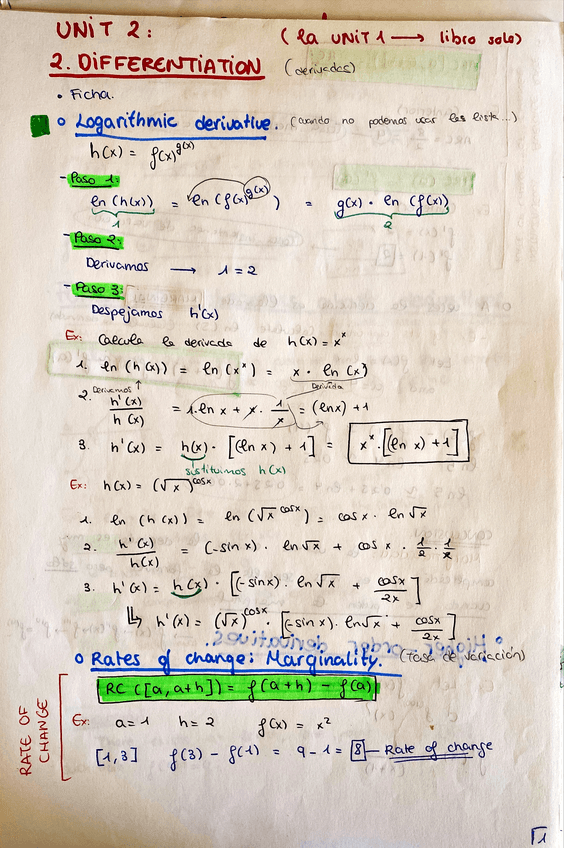 UNIT 2: (la UNIT 1 ⟶ libro solo)
2. DIFFERENTIATION (derivadas)
• Ficha.
○ Logarithmic derivative. (cuando no podemos usar las lista...)
h(x) = f(x)^g(x)
- Paso 1:
ln (h(x)) = ln (f(x)^g(x)) = g(x) · ln (f(x))
1 2
- Paso 2:
Derivamos ⟶ 1 = 2
- Paso 3:
Despejamos h'(x)
Ex: Calcula la derivada de h(x) = x^x
1. ln (h(x)) = ln (x^x) = x · ln (x)
Derivamos ↑ Derivida
2. h'(x)/h(x) = 1·ln x + x · 1/x = (ln x) + 1
3. h'(x) = h(x) · [(ln x) + 1] = x^x · [(ln x) + 1]
sustituimos h(x)
Ex: h(x) = (√x)^cosx
1. ln (h(x)) = ln (√x^cosx) = cosx · ln √x
2. h'(x)/h(x) = (-sin x) · ln √x + cos x · 1/2 · 1/x
3. h'(x) = h(x) · [(-sin x) · ln √x + cosx/2x]
h'(x) = (√x)^cosx · [(-sin x) · ln √x + cosx/2x]
○ Rates of change: Marginality. (Tasa de variación)
RATE OF CHANGE
RC ([a, a+h]) = f(a+h) - f(a)
Ex: a = 1 h = 2 f(x) = x²
[1,3] f(3) - f(1) = 9 - 1 = 8 — Rate of change
1